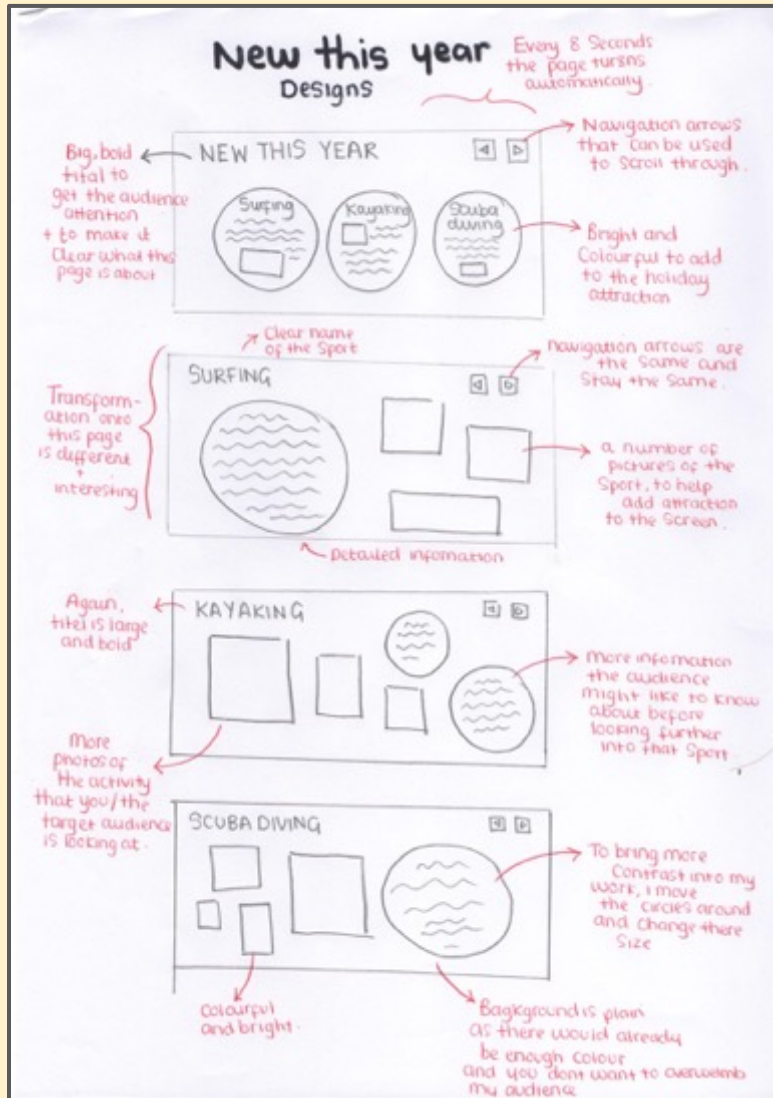 New this year
Designs
Every 8 Seconds
the page turns
automatically.
Big, bold
tital to
get the audience
attention
+ to make it
Clear what this
page is about
NEW THIS YEAR
Surfing
Kayaking
Scuba
diving
Navigation arrows
that can be used
to Scroll through.
Bright and
Colourful to add
to the holiday
attraction
Clear name
of the Sport
Transform-
ation onto
this page
is different
+
interesting
SURFING
navigation arrows are
the Same and
Stay the Same.
a number of
pictures of the
Sport, to help
add attraction
to the Screen.
Detailed infomation
Again,
titel is large
and bold
KAYAKING
More infomation
the audience
might like to know
about before
looking further
into that Sport.
More
photos of
the activity
that you/the
target audience
is looking at.
SCUBA DIVING
To bring more
Contrast into my
work, I move
the circles around
and change there
Size
Colourful
and bright.
Bagkground is plain
as there would already
be enough colour
and you dont want to
my audience